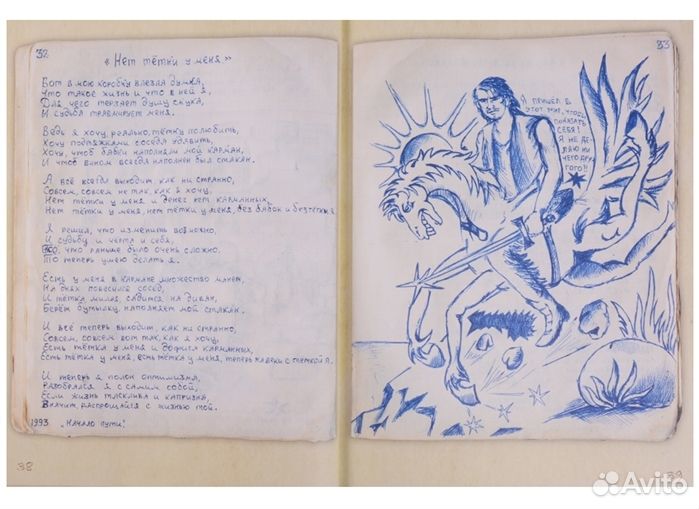 32
« Нет тётки у меня »
Вот в мою коробку влезла думка,
Что такое жизнь и что в ней я,
Для чего терзает душу скука,
И судьба травмирует меня.
Ведь я хочу, реально, тётку полюбить,
Хочу подтяжками соседа удавить,
Хочу, чтоб бабки наполняли мой карман,
И чтоб вином всегда наполнен был стакан.
А всё всегда выходит как ни странно,
Совсем, совсем не так, как я хочу,
Нет тётки у меня и денег нет карманных,
Нет тётки у меня, нет тётки у меня, без бабок и без тётки я
Я решил, что изменить возможно,
И судьбу и черта и себя,
что раньше было очень сложно.
То теперь умею делать я.
Есть у меня в кармане множество монет,
На днях повесился сосед,
И тётка милая, садится на диван,
Берём бутылку, наполняем мой стакан.
И всё теперь выходит, как ни странно,
Совсем, совсем вот так, как я хочу,
Есть тётка у меня и до фига карманных,
Есть тётка у меня, есть тётка у меня, теперь навеки с тёткой я.
И теперь я полон оптимизма,
Разобрался я с самим собой,
Если жизнь тосклива и капризна,
Значит, распрощайся с жизнью той.
1993 „Начало пути”
33
Я пришёл в
этот мир, чтоб
показать
себя!
Я не де-
лаю ни
чего дру
гого!!
38
39
Avito